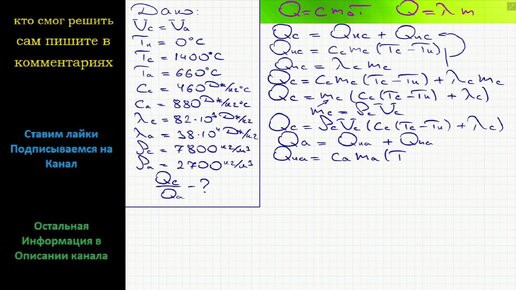 кто смог решить
сам пишите в
комментариях
Ставим лайки
Подписываемся на
Канал
Остальная
Информация в
Описании канала
Дано:
Vc = Va
Tн = 0°C
Tc = 1400°C
Ta = 660°C
Cc = 460 Дж/кг°C
Ca = 880 Дж/кг°C
λc = 82·10³ Дж/кг
λa = 38·10⁴ Дж/кг
ρc = 7800 кг/м³
ρa = 2700 кг/м³
Qc/Qa - ?
Q = cmδT Q = λm
Qc = Qнc + Qпc
Qнc = Cc mc (Tc - Tн)
Qпc = λc mc
Qc = Cc mc (Tc - Tн) + λc mc
Qc = mc (Cc (Tc - Tн) + λc)
mc = ρc Vc
Qc = ρc Vc (Cc (Tc - Tн) + λc)
Qa = Qнa + Qпa
Qнa = Ca ma (T